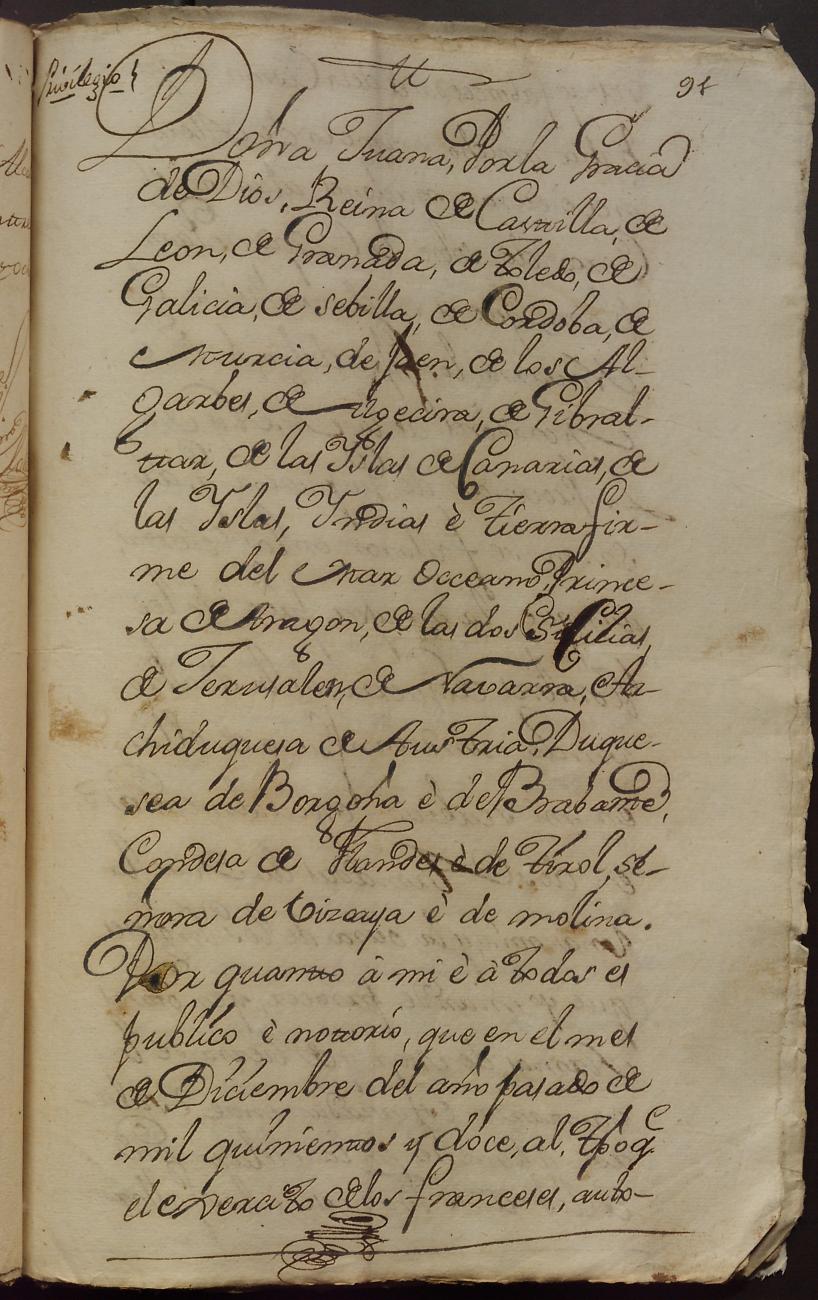 Privilegio
91
Doña Juana, Por la Gracia
de Dios, Reina de Castilla, de
Leon, de Granada, de Toledo, de
Galicia, de sebilla, de Cordoba, de
Murcia, de Jaen, de los Al-
garbes, de Algecira, de Gibral-
ttar, de las Yslas de Canarias, de
las Yslas, Yndias è tierra fir-
me del Mar Occeano, Prince-
sa de Aragon, de las dos Sicilias,
de Jerusalen, de Navarra, Ar-
chiduquesa de Austria, Duque-
sea de Borgoña è de Brabante,
Condesa de Flandes è de Tirol, se-
ñora de Vizcaya è de molina.
Por quantto à mi è à todos es
publico è nottorio, que en el mes
de Diciembre del año pasado de
mil quinientos y doce, al tpo q.e
el exercito de los franceses, auto-